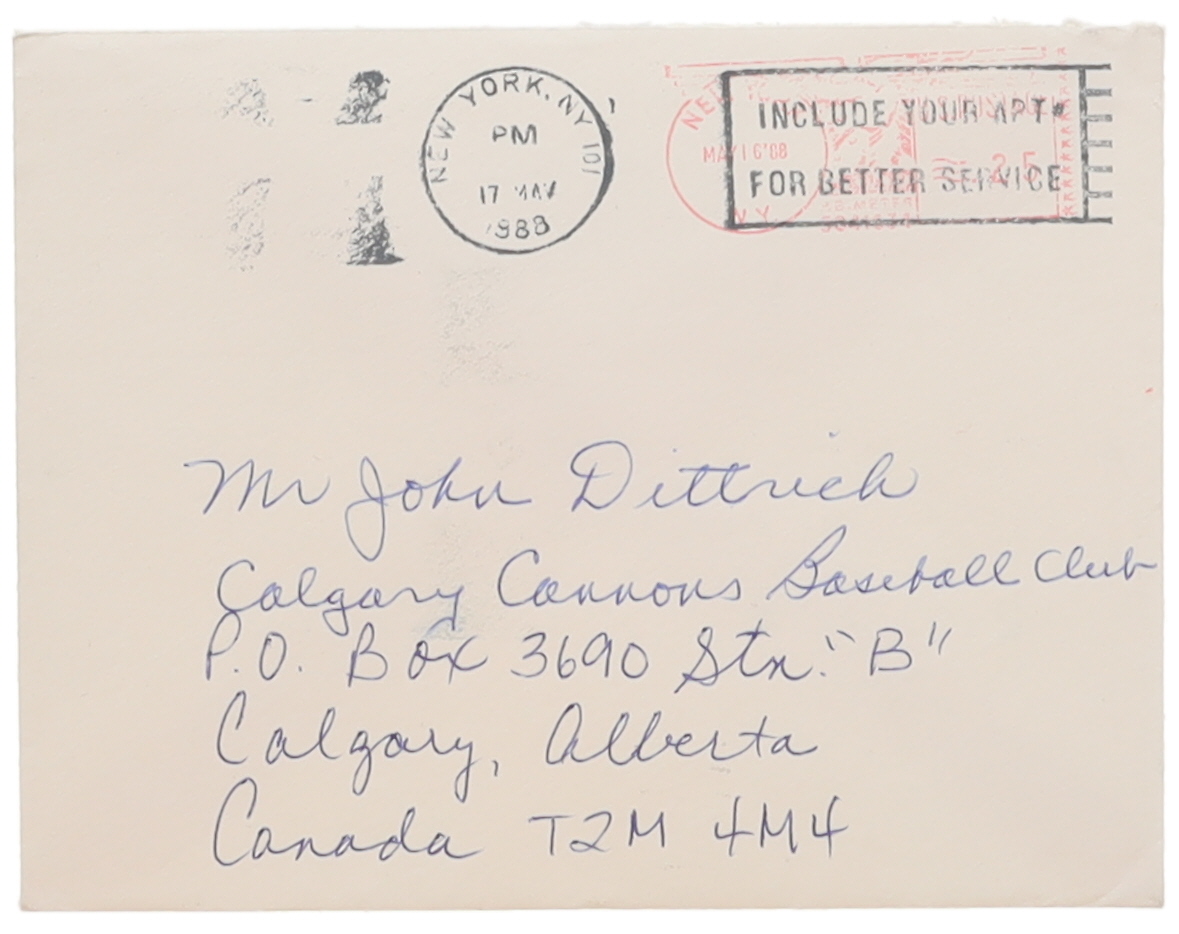 NEW YORK, NY 101
PM
17 MAY
1988
MAY 16'88
N.Y.
.25
INCLUDE YOUR APT#
FOR BETTER SERVICE
Mr John Dittrich
Calgary Cannons Baseball Club
P.O. Box 3690 Stn. "B"
Calgary, Alberta
Canada T2M 4M4